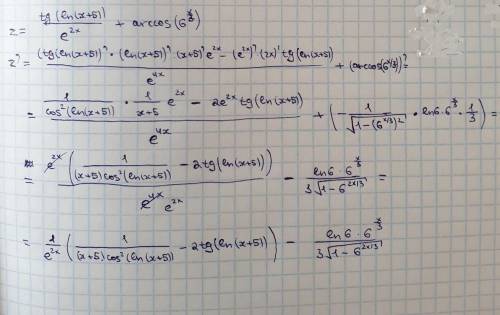 z = tg(ln(x+5)) / e^{2x} + arccos(6^{x/3})
z' = ((tg(ln(x+5))' · (ln(x+5))' (x+5)' e^{2x} − (e^{2x})' (2x)' tg(ln(x+5))) / e^{4x} + (arccos(6^{x/3}))' =
= (1 / cos²(ln(x+5)) · 1 / (x+5) e^{2x} − 2e^{2x} tg(ln(x+5))) / e^{4x} + (− 1 / √(1−(6^{x/3})²) · ln6·6^{x/3} · 1/3) =
= e^{2x} (1 / ((x+5)cos²(ln(x+5))) − 2tg(ln(x+5))) / e^{4x} e^{2x} − ln6·6^{x/3} / 3√(1−6^{2x/3}) =
= 1 / e^{2x} (1 / ((x+5)cos²(ln(x+5))) − 2tg(ln(x+5))) − ln6·6^{x/3} / 3√(1−6^{2x/3})